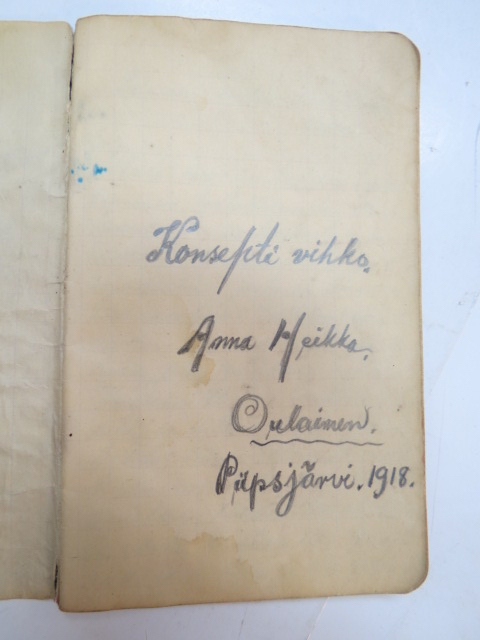 Konsepti vihko.
Anna Heikka.
Oulainen.
Piipsjärvi. 1918.